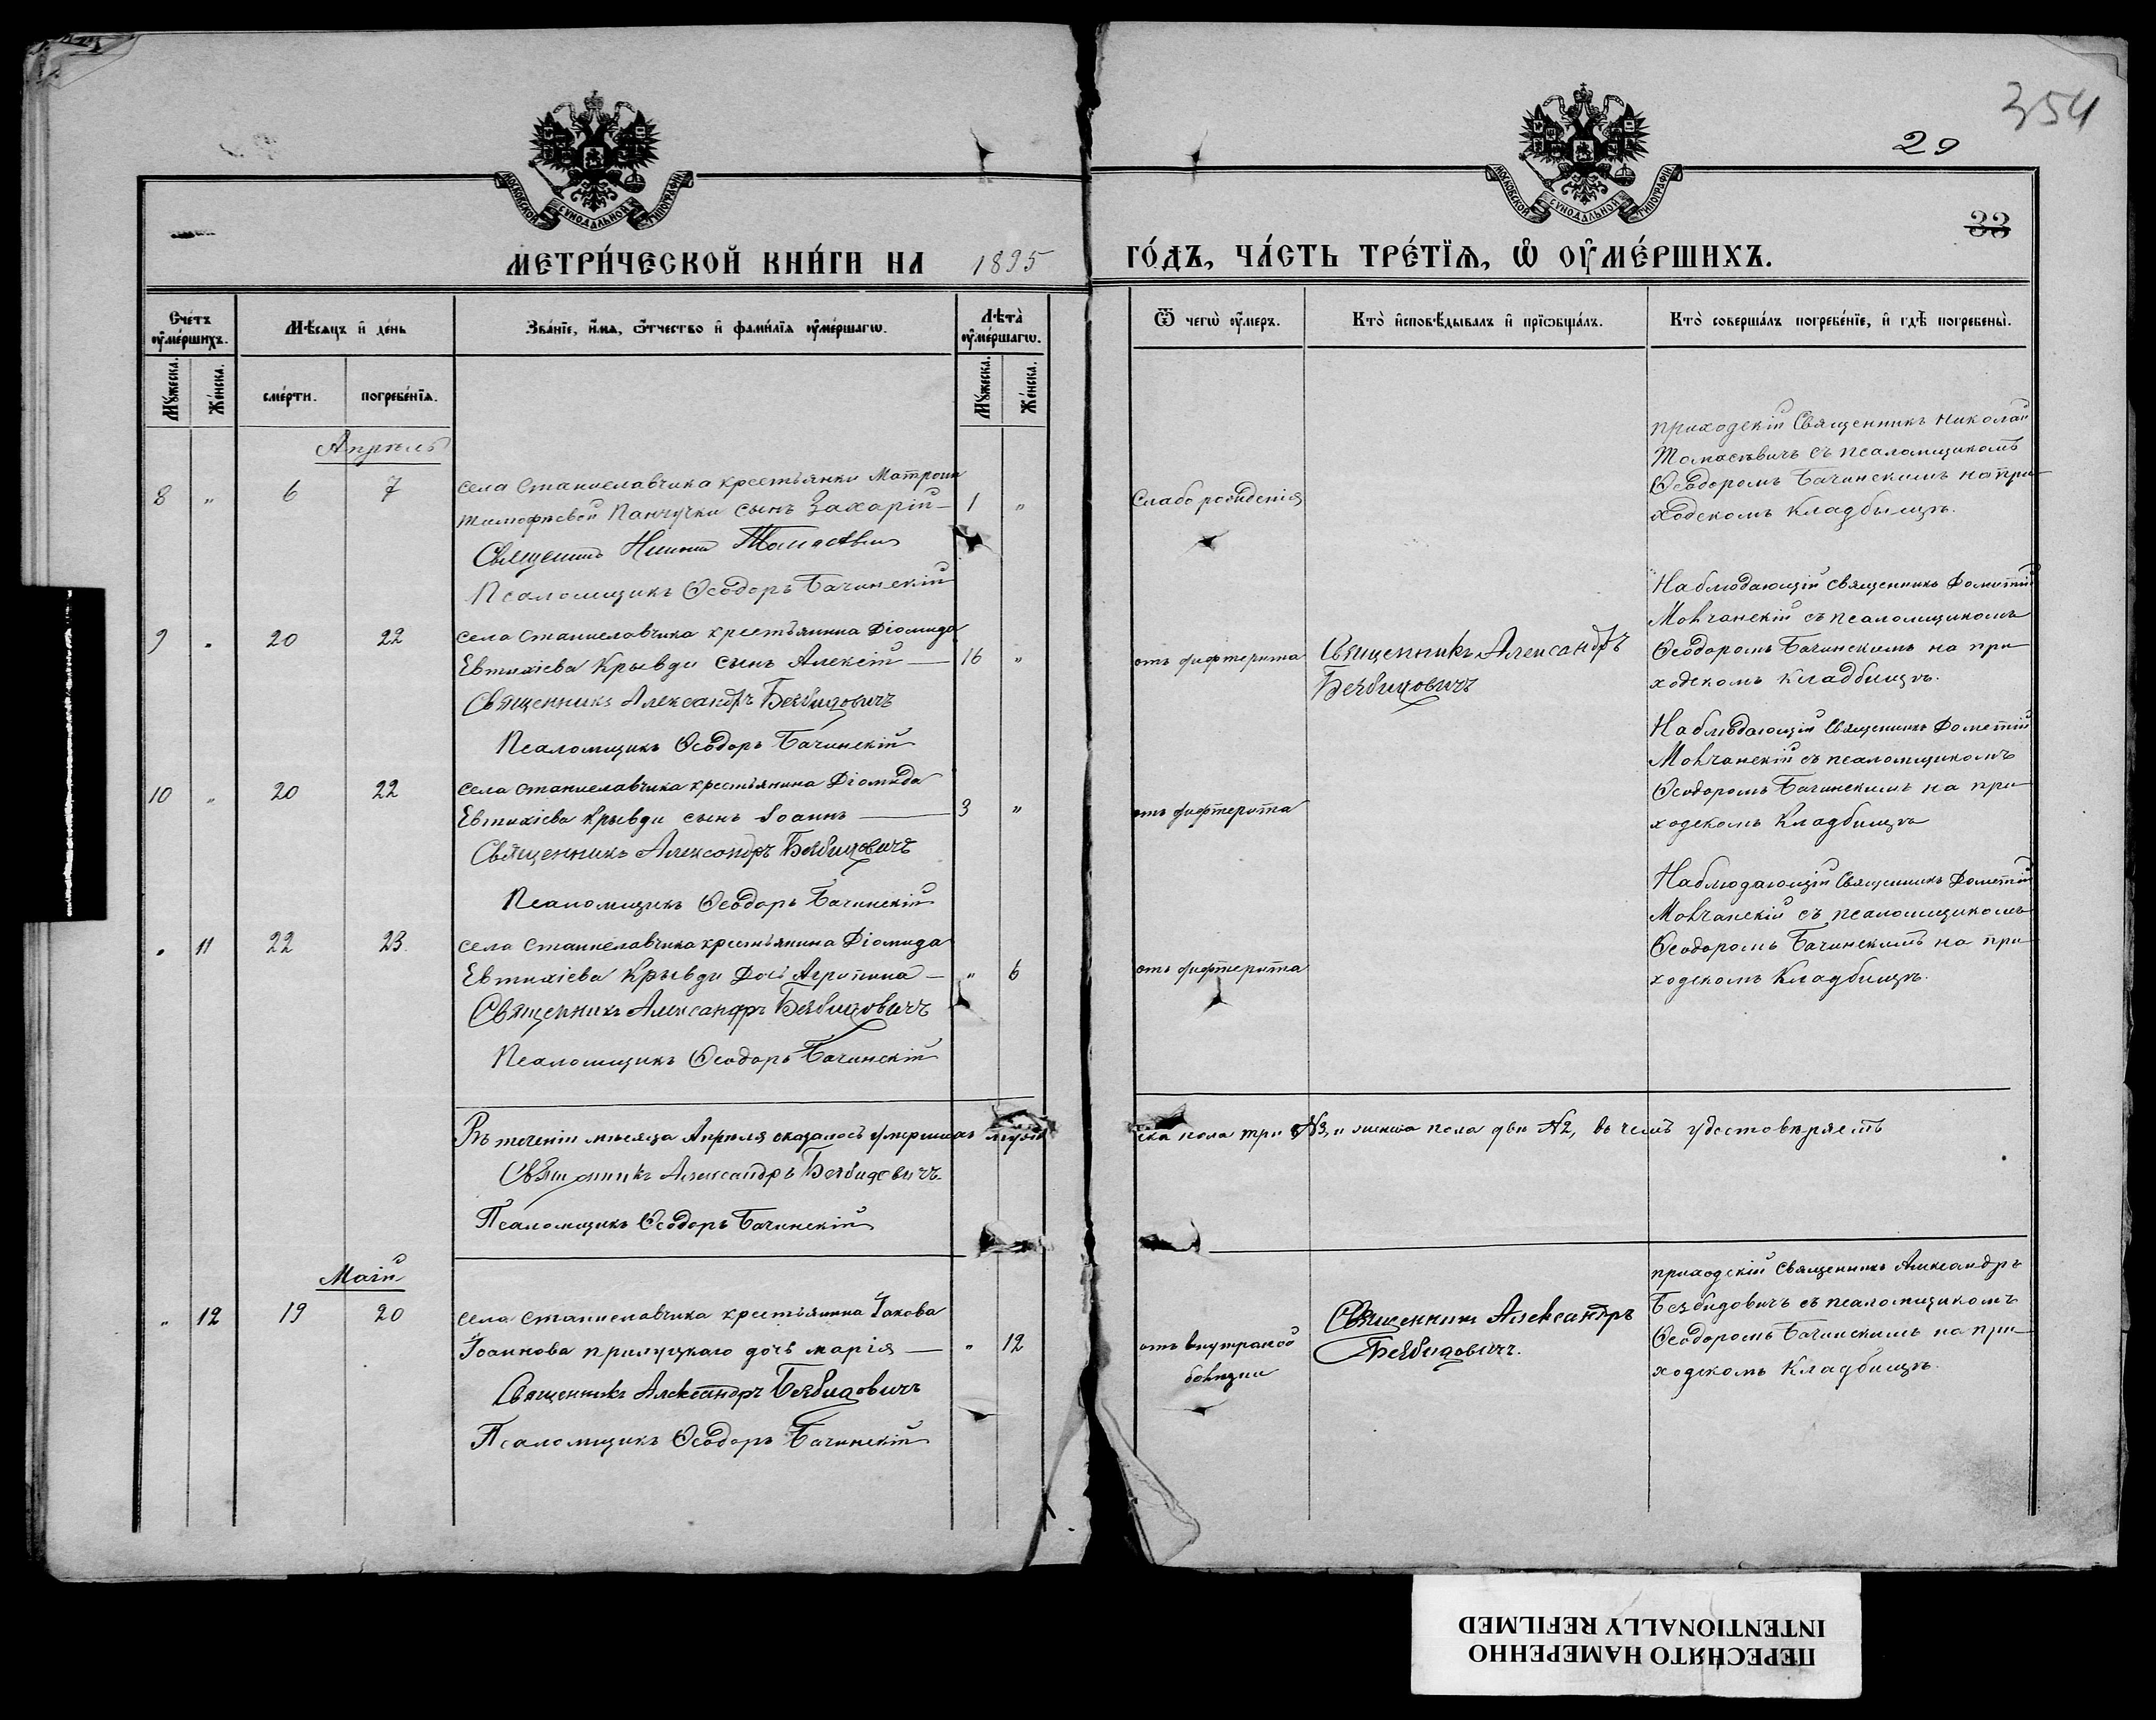 354
20
33
МОСКОВСКОЙ СѴНОДАЛЬНОЙ ТИПОГРАФІИ
МОСКОВСКОЙ СѴНОДАЛЬНОЙ ТИПОГРАФІИ
МЕТРИ́ЧЕСКОЙ КНИ́ГИ НА 1895 ГО́ДЪ, ЧА́СТЬ ТРЕ́ТЇѦ, Ѡ҆ ОУ҆МЕ́РШИХЪ.
Сче́тъ оу҆ме́ршихъ.
Мѣ́сяцъ и҆ де́нь
Зва́нїе, и҆́мя, ѻ҆́тчество и҆ фами́лїя оу҆ме́ршагѡ.
Лѣ́та оу҆ме́ршагѡ.
Ѿ чегѡ̀ оу҆́меръ.
Кто̀ и҆сповѣ́дывалъ и҆ прїѡбща́лъ.
Кто̀ соверша́лъ погребе́нїе, и҆ гдѣ̀ погребены̀.
Мꙋ́жеска.
Же́нска.
сме́рти.
погребе́нїя.
Мꙋ́жеска.
Же́нска.
Апрѣль
8 " 6 7 села Станиславчика крестьянки Матроны
Тимофѣевой Панчучки сынъ Захарій — 1 "
Священникъ Томасевичъ
Псаломщикъ Ѳеодоръ Бачинскій
Слабо рожденія
приходскій Священникъ Николай
Томасевичъ съ псаломщикомъ
Ѳеодоромъ Бачинскимъ на при-
ходскомъ кладбищѣ.
9 " 20 22 села Станиславчика крестьянина Діомида
Евтихіева Крывди сынъ Алексій — 16 "
Священникъ Александръ Безбидовичъ
Псаломщикъ Ѳеодоръ Бачинскій
отъ дифтерита
Священникъ Александръ
Безбидовичъ
Наблюдающій священникъ Дометій
Мовчанскій съ псаломщикомъ
Ѳеодоромъ Бачинскимъ на при-
ходскомъ кладбищѣ.
10 " 20 22 села Станиславчика крестьянина Діомида
Евтихіева Крывди сынъ Іоаннъ — 3 "
Священникъ Александръ Безбидовичъ
Псаломщикъ Ѳеодоръ Бачинскій
отъ дифтерита
Наблюдающій Священникъ Дометій
Мовчанскій съ псаломщикомъ
Ѳеодоромъ Бачинскимъ на при-
ходскомъ кладбищѣ
" 11 22 23 села Станиславчика крестьянина Діомида
Евтихіева Крывди дочь Агрипина — " 6
Священникъ Александръ Безбидовичъ
Псаломщикъ Ѳеодоръ Бачинскій
отъ дифтерита
Наблюдающій Священникъ Дометій
Мовчанскій съ псаломщикомъ
Ѳеодоромъ Бачинскимъ на при-
ходскомъ кладбищѣ.
Въ теченіи мѣсяца Апрѣля оказалось умершихъ мужеска пола три №3, и женска пола два №2, въ чемъ удостовѣряетъ
Священникъ Александръ Безбидовичъ
Псаломщикъ Ѳеодоръ Бачинскій
Маій
" 12 19 20 села Станиславчика крестьянина Іакова
Іоаннова прилуцкаго дочь марія — " 12
Священникъ Александръ Безбидовичъ
Псаломщикъ Ѳеодоръ Бачинскій
отъ внутраной
болѣзни
Священникъ Александръ
Безбидовичъ.
приходскій священникъ Александръ
Безбидовичъ съ псаломщикомъ
Ѳеодоромъ Бачинскимъ на при-
ходскомъ кладбищѣ.
ПЕРЕСНЯТО НАМЕРЕННО
INTENTIONALLY REFILMED